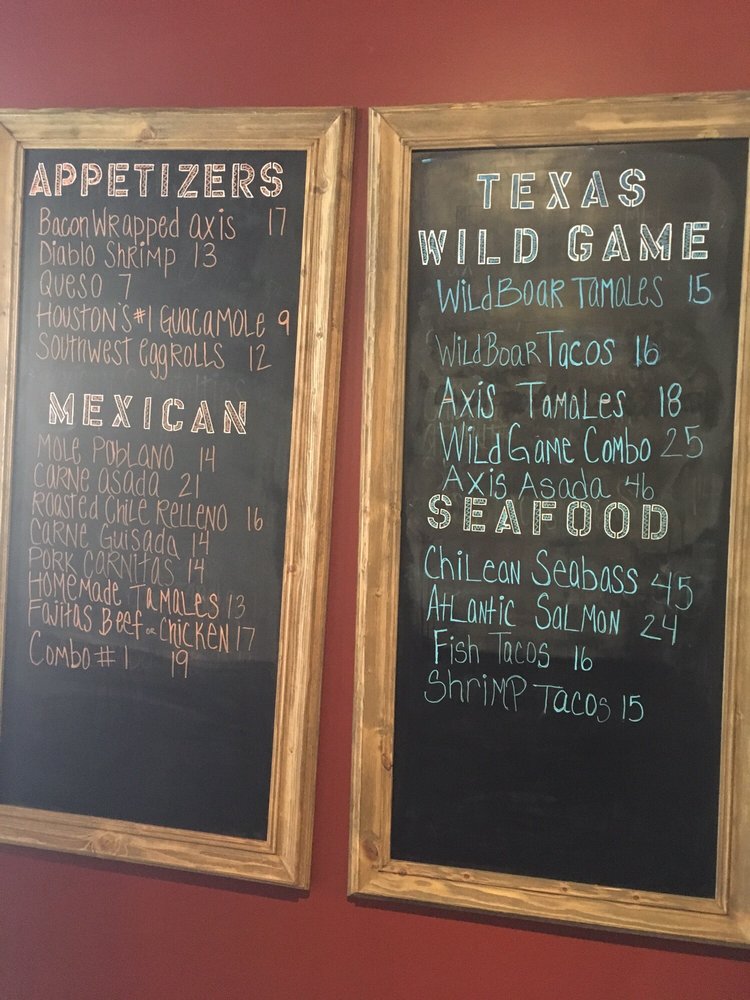 APPETIZERS
Bacon Wrapped axis 17
Diablo Shrimp 13
Queso 7
Houston's #1 Guacamole 9
Southwest eggrolls 12
MEXICAN
Mole Poblano 14
Carne asada 21
Roasted Chile Relleno 16
Carne Guisada 14
Pork Carnitas 14
Homemade Tamales 13
Fajitas Beef or Chicken 17
Combo #1 19
TEXAS
WILD GAME
Wild Boar Tamales 15
Wild Boar Tacos 16
Axis Tamales 18
Wild Game Combo 25
Axis Asada 46
SEAFOOD
Chilean Seabass 45
Atlantic Salmon 24
Fish Tacos 16
Shrimp Tacos 15